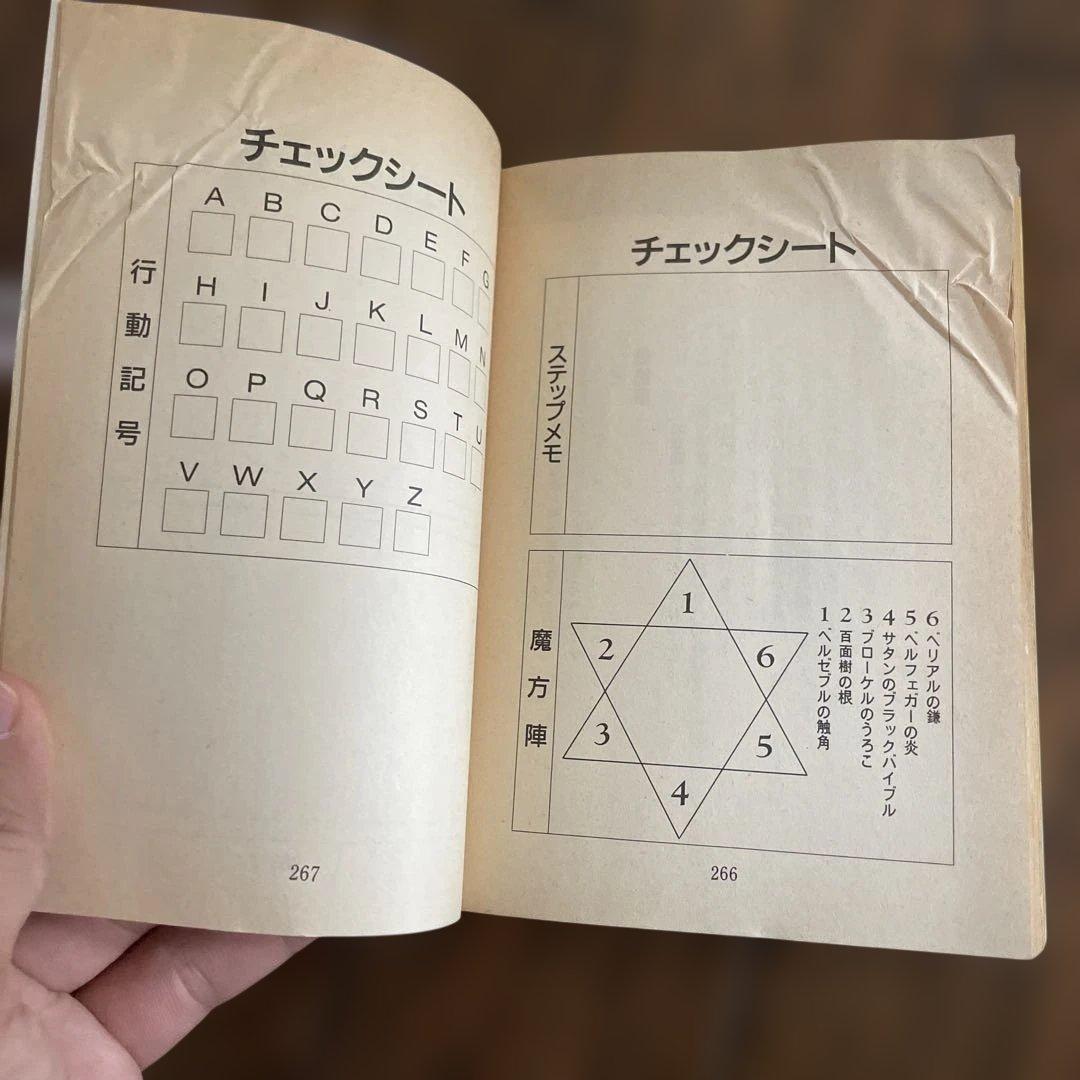 チェックシート
ステップメモ
魔方陣
1
2
6
3
5
4
1 ベルゼブルの触角
2 百面樹の根
3 ブローケルのうろこ
4 サタンのブラックバイブル
5 ベルフェガーの炎
6 ベリアルの鎌
266
チェックシート
行動記号
A B C D E F G
H I J K L M N
O P Q R S T U
V W X Y Z
267